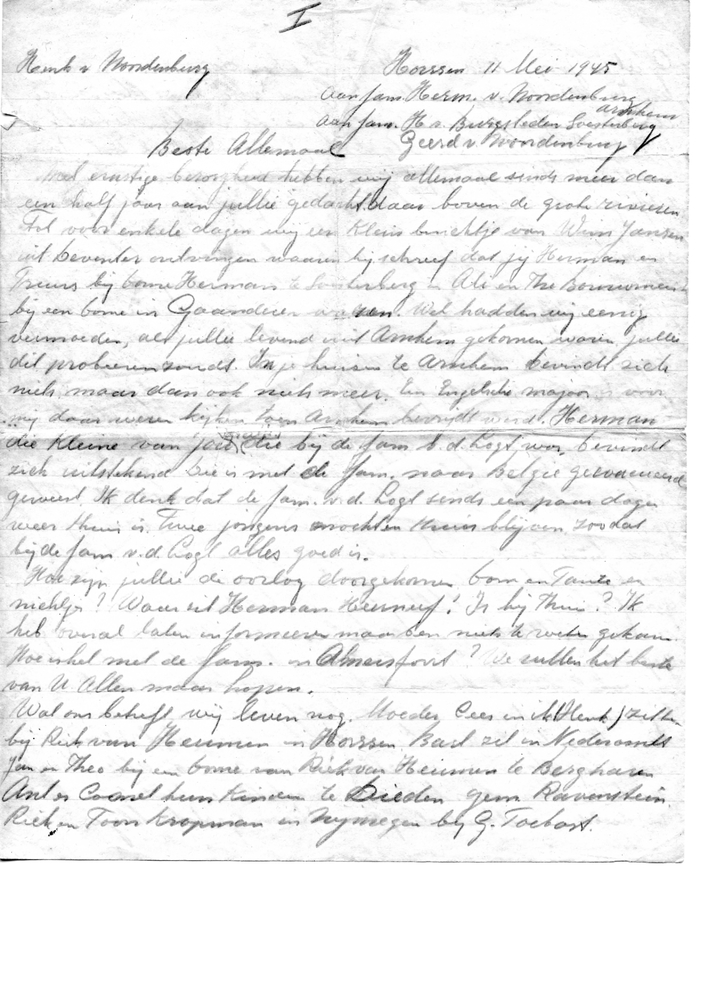 I
Henk v Noordenburg
Horssen 11 Mei 1945
Aan fam. Herm. v. Noordenburg Arnhem
Aan fam. H v. Burgsteden Soesterberg
Beste Allemaal Geerd v Noordenburg
Met ernstige bezorgheid hebben wij allemaal sinds meer dan
een half jaar aan jullie gedacht daar boven de grote rivieren
Tot voor enkele dagen wij een klein berichtje van Wim Jansen
uit Deventer ontvingen waarin hij schreef dat jij Herman en
Truus bij oome Herman te Soesterberg en Ali en Theo Bouwmens
bij een oome in Gaanderen waren. Wel hadden wij eenig
vermoeden, als jullie levend uit Arnhem gekomen waren, jullie
dit probieren zoudt. In je huisen te Arnhem bevindt zich
niets maar dan ook niets meer. Een Engelsche majoor is voor
mij daar weren kijken toen Arnhem bevrijdt werd. Herman
die kleine van die bij de fam. v.d. Logt was, bevindt
zich uitstekend. Die is met de fam. naar Belgie geevacueerd
geweest. Ik denk dat de fam. v.d. Logt sinds een paar dagen
weer thuis is. Twee jongens mochten thuis blijven zoodat
bij de fam v.d. Logt alles goed is.
Hoe zijn jullie de oorlog doorgekomen oom en Tante en
nichtje? Waar zit Herman ! Is hij thuis? Ik
heb overal laten informeeren maar ben niets te weten gekomen.
Hoe is het met de fam. in Amersfoort? We zullen het beste
van U Allen maar hopen.
Wat ons betreft wij leven nog. Moeder, Cees en ik (Henk) zitten
bij Riek van Heumen in Horssen. Bart zit in Nederasselt
Jan en Theo bij een oome van Riek van Heumen te Bergharen
Ant en Coonel hun kinderen te Dieden gem Ravenstein
Riek en Toon Kropman in Nijmegen bij G. Toebast.